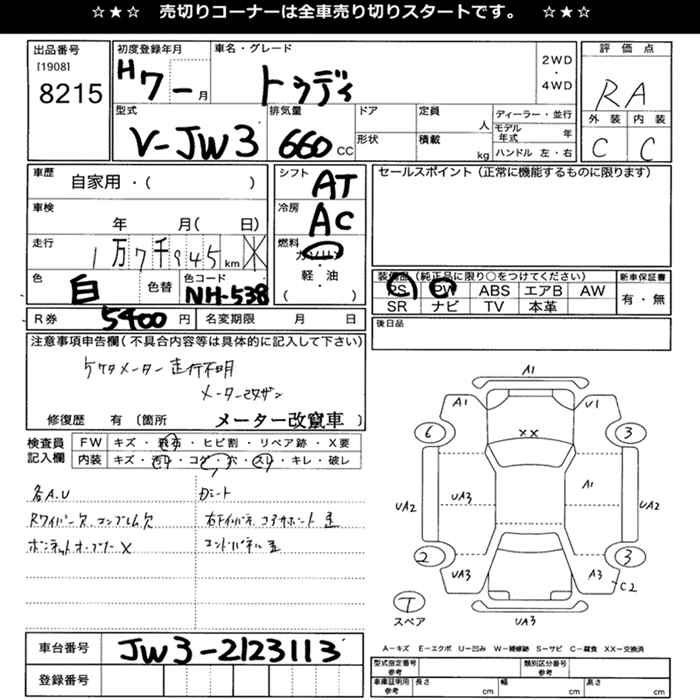 ☆★☆ 売切りコーナーは全車売り切りスタートです。 ☆★☆
出品番号
[1908]
8215
初度登録年月
H7-1月
車名・グレード
トゥディ
2WD
・
4WD
評価点
RA
外装 内装
C C
型式
V-JW3
排気量
660 CC
ドア
形状
定員
人
積載
kg
ディーラー・並行
モデル年式 年
ハンドル 左・右
車歴
自家用・( )
車検
年 月( 日)
走行
1万7千945km ※
色
白
色替
色コード
NH-538
シフト
AT
冷房
AC
燃料
ガソリン
・
軽・油
( )
セールスポイント(正常に機能するものに限ります)
装備品(純正品に限り○をつけてください)
PS PW ABS エアB AW
SR ナビ TV 本革
新車保証書
有・無
後日品
R券 5400 円
名変期限 月 日
注意事項申告欄(不具合内容等は具体的に記入して下さい)
メーター 走行不明
メーター改ザン
修復歴 有 〔箇所 メーター改竄車 〕
検査員記入欄
FW キズ・飛石・ヒビ割・リペア跡・X要
内装 キズ・汚レ・コゲ・穴・スレ・キレ・破レ
各A.U
Rワイパー欠 エンブレム欠
ボンネットオープナーX
コアサポート
車台番号
JW3-2123113
登録番号
A1
A1 U1
6 XX 3
A1
UA2 UA3 UA2
2 3
UA3 A3 C2
T
スペア
UA3
A-キズ E-エクボ U-凹み W-補修跡 S-サビ C-腐食 XX-交換済
型式指定番号
参考
類別区分番号
参考
車庫証明用
参考
長さ cm 幅 cm 高さ cm